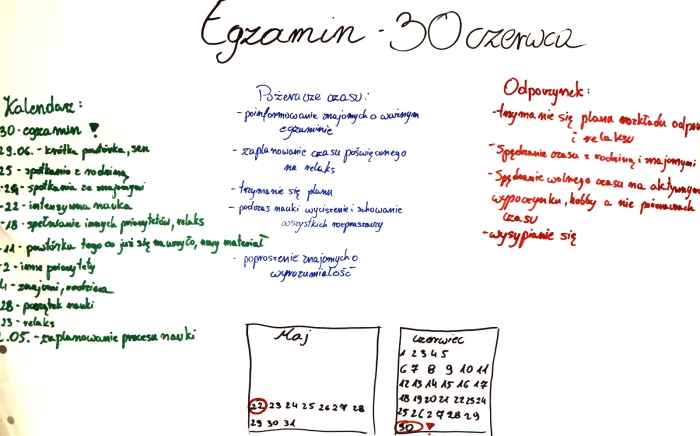 Egzamin - 30 czerwca
Kalendarz:
30 - egzamin !
29.06. - krótka powtórka, sen
25 - spotkanie z rodziną
- 24 - spotkania ze znajomymi
- 22 - intensywna nauka
- 18 - spełnianie innych priorytetów, relaks
- 11 - powtórka tego co już się umyło, nowy materiał
- 2 - inne priorytety
4 - znajomi, rodzina
28 - początek nauki
23 - relaks
2.05. - zaplanowanie procesu nauki
Pożeracze czasu:
- poinformowanie znajomych o ważnym
egzaminie
- zaplanowanie czasu poświęconego
na relaks
- trzymanie się planu
- podczas nauki wyciszenie i schowanie
wszystkich rozpraszaczy
- poproszenie znajomych o
wyrozumiałość
Odpoczynek:
- trzymanie się planu rozkładu odpo
i relaksu
- Spędzanie czasu z rodziną i znajomymi
- Spędzanie wolnego czasu na aktywnym
wypoczynku, hobby a nie pożeraczach
czasu
- wysypianie się
Maj
22 23 24 25 26 27 28
29 30 31
czerwiec
1 2 3 4 5
6 7 8 9 10 11
12 13 14 15 16 17
18 19 20 21 22 23 24
25 26 27 28 29
30